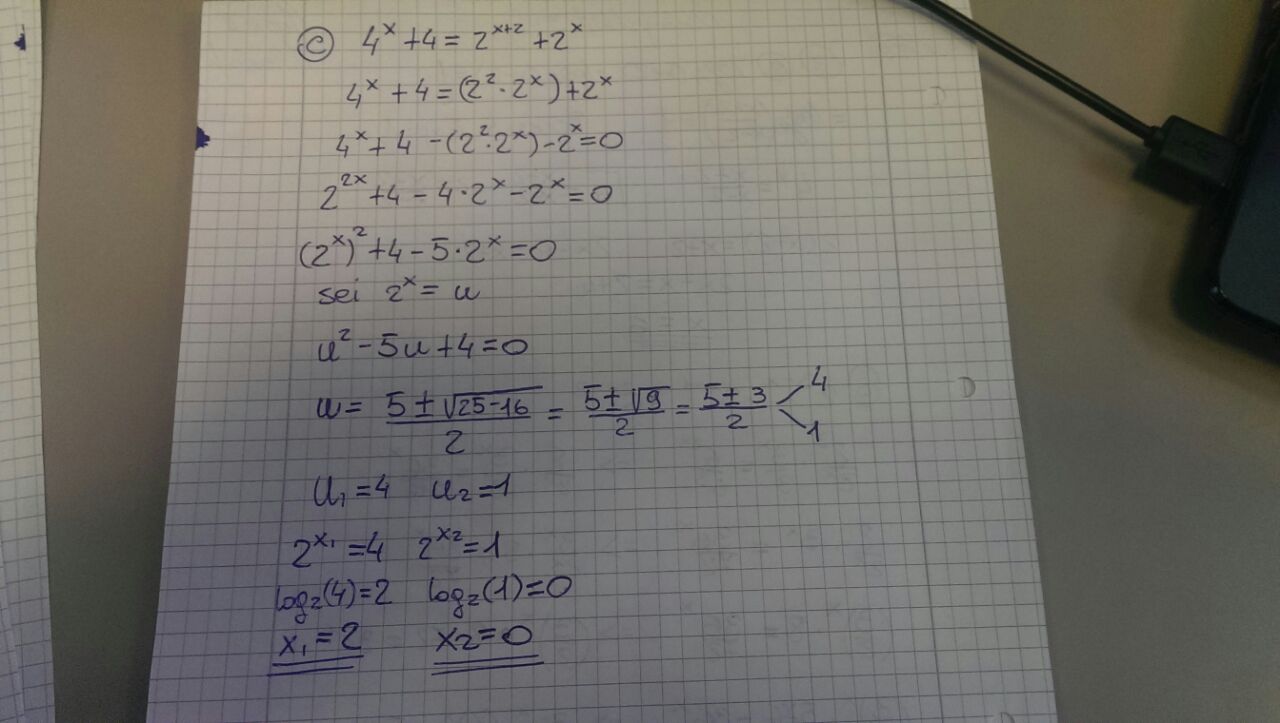 c 4^x + 4 = 2^{x+2} + 2^x
4^x + 4 = (2^2 · 2^x) + 2^x
4^x + 4 - (2^2 · 2^x) - 2^x = 0
2^{2x} + 4 - 4 · 2^x - 2^x = 0
(2^x)^2 + 4 - 5 · 2^x = 0
sei 2^x = u
u^2 - 5u + 4 = 0
u = (5 ± √(25-16))/2 = (5 ± √9)/2 = (5 ± 3)/2 < 4 1
u₁ = 4 u₂ = 1
2^{x₁} = 4 2^{x₂} = 1
log₂(4) = 2 log₂(1) = 0
x₁ = 2 x₂ = 0